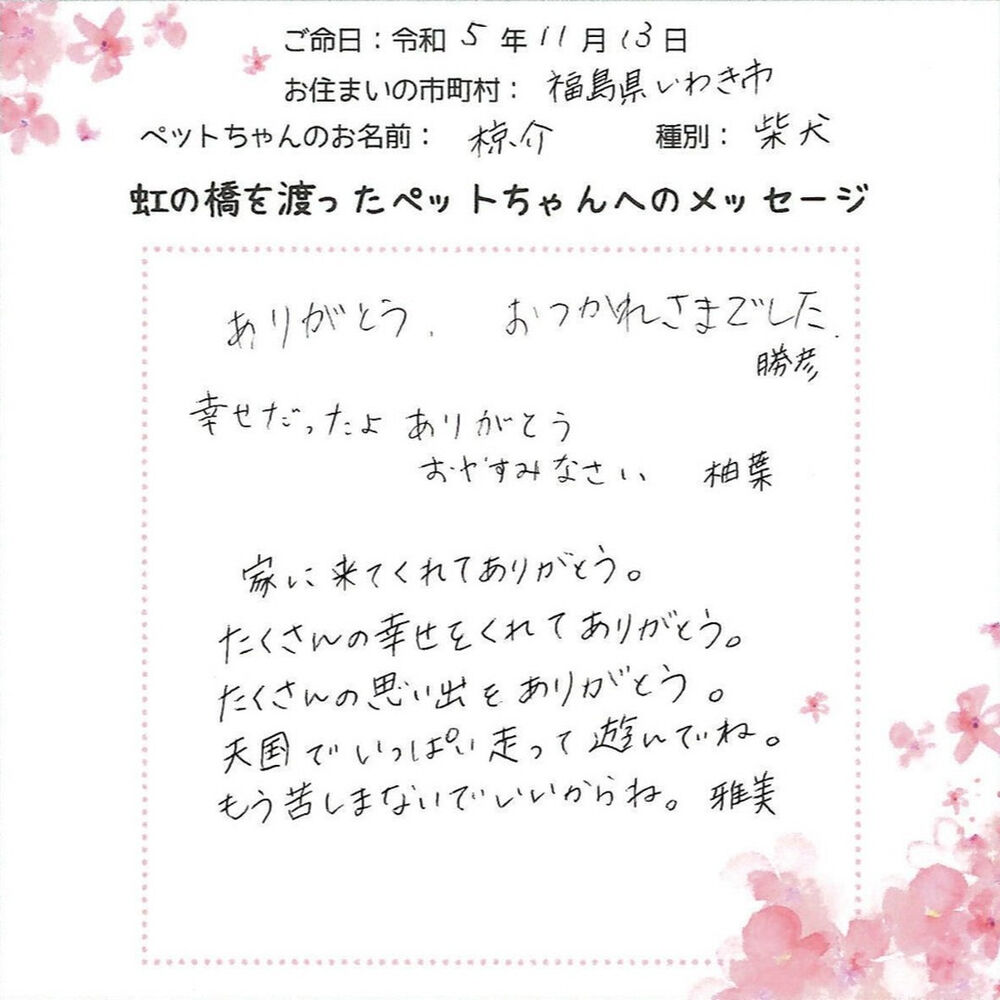 ご命日：令和 5 年 11 月 13 日
お住まいの市町村： 福島県いわき市
ペットちゃんのお名前： 椋介 種別： 柴犬
虹の橋を渡ったペットちゃんへのメッセージ
ありがとう. おつかれさまでした.
勝彦
幸せだったよ ありがとう
おやすみなさい 柚葉
家に来てくれてありがとう。
たくさんの幸せをくれてありがとう。
たくさんの思い出をありがとう。
天国でいっぱい走って遊んでね。
もう苦しまないでいいからね。 雅美